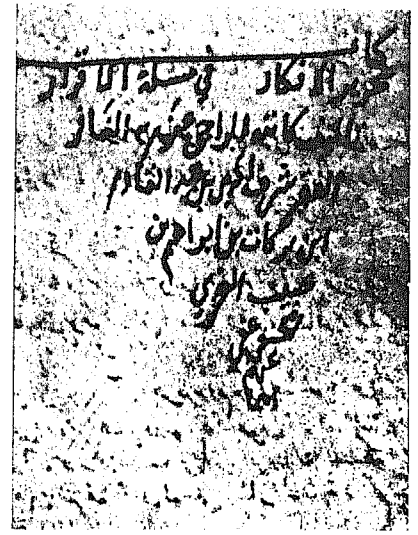 كتاب
تحرير الافكار في مسئلة الاقرار
كاتبه الراجي عفو ربه الغافر
الفقير شرف الدين بن عبد القادر
ابن بركات بن ابراهيم بن
حبيب الغزي
عفي
عنه